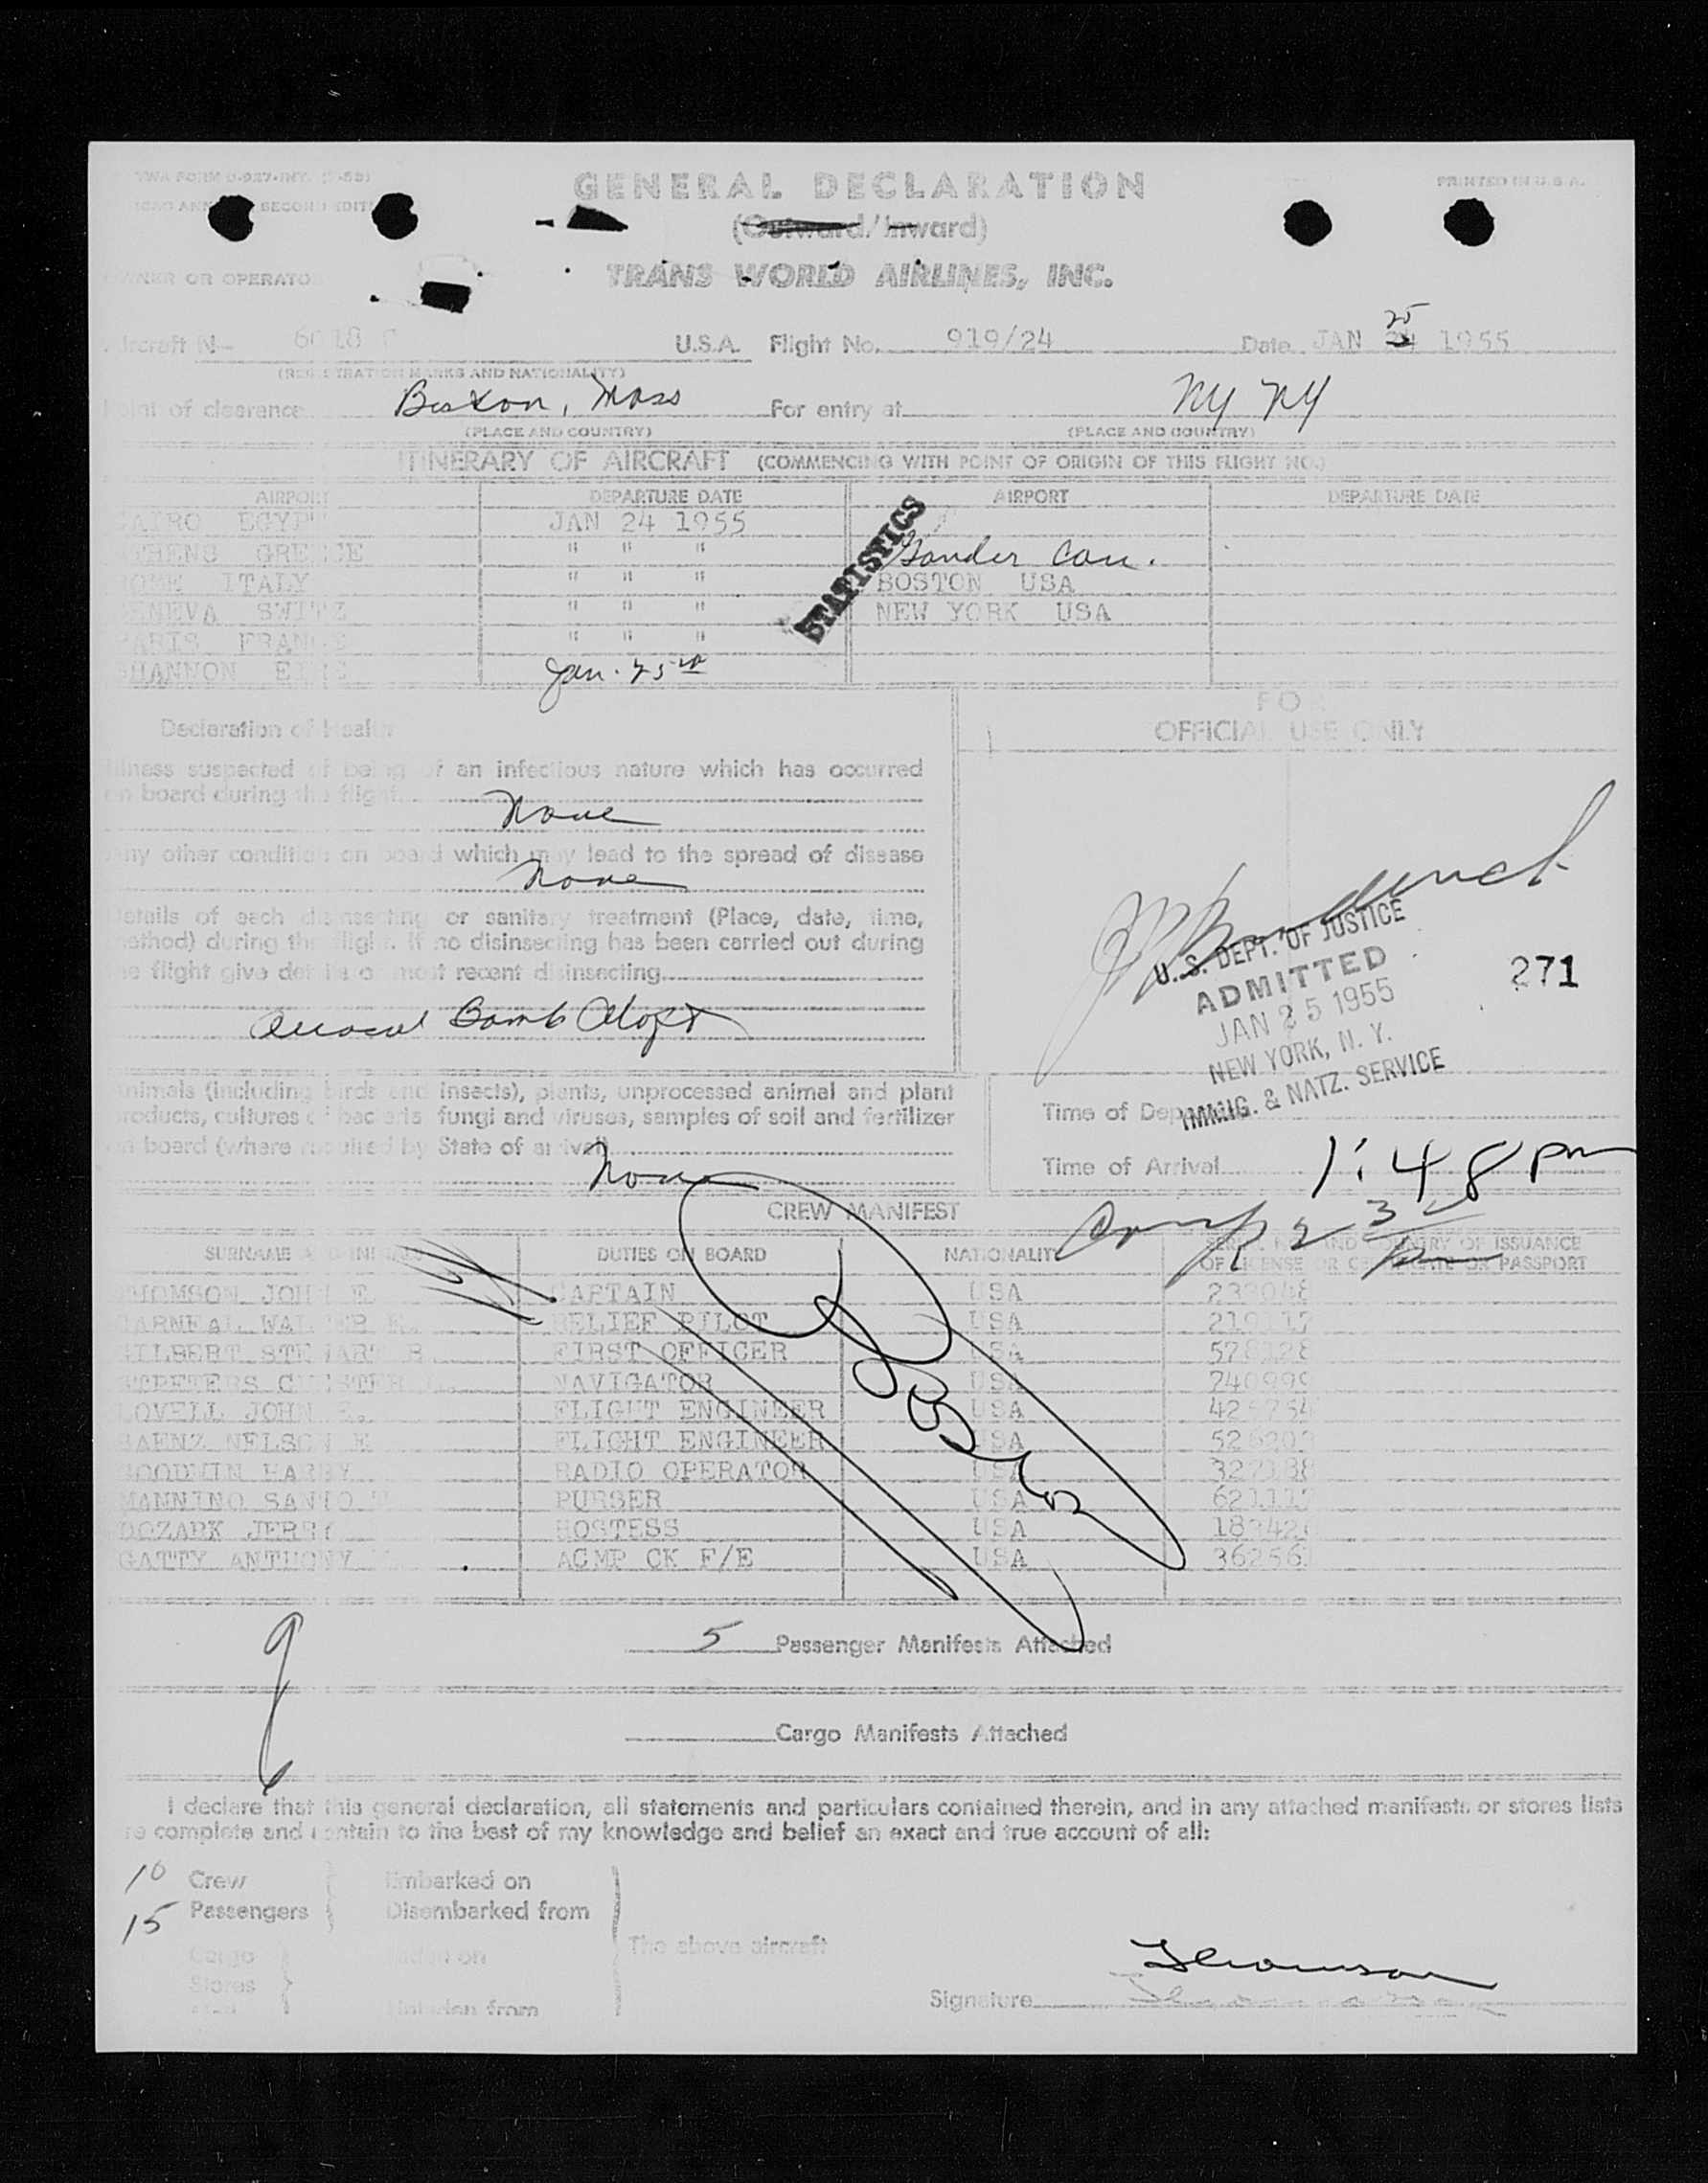 TWA FORM
PRINTED IN U.S.A.
GENERAL DECLARATION
SECOND
(Outward/Inward)
OR OPERATO
TRANS WORLD AIRLINES, INC.
25
U.S.A. Flight No. 919/24 Date JAN 24 1955
(REGISTRATION MARKS AND NATIONALITY)
Point of clearance Boston, Mass For entry at NY NY
(PLACE AND COUNTRY) (PLACE AND COUNTRY)
ITINERARY OF AIRCRAFT (COMMENCING WITH POINT OF ORIGIN OF THIS FLIGHT NO.)
AIRPORT DEPARTURE DATE AIRPORT DEPARTURE DATE
CAIRO EGYPT JAN 24 1955
ATHENS GREECE " " " Gander Can.
ROME ITALY " " " BOSTON USA
GENEVA SWITZ " " " NEW YORK USA
PARIS FRANCE " " "
SHANNON EIRE Jan. 25
STATISTICS
Declaration of Health
FOR
OFFICIAL USE ONLY
Illness suspected of being of an infectious nature which has occurred
on board during the flight
None
Any other condition on board which may lead to the spread of disease
None
Details of each disinsecting or sanitary treatment (Place, date, time,
method) during the flight. If no disinsecting has been carried out during
the flight give details of most recent disinsecting
Bomb Aloft
U.S. DEPT. OF JUSTICE
ADMITTED
JAN 25 1955
NEW YORK, N. Y.
IMMIG. & NATZ. SERVICE
271
Animals (including birds and insects), plants, unprocessed animal and plant
products, cultures of bacteria fungi and viruses, samples of soil and fertilizer
on board (where required by State of arrival)
None
Time of Departure
Time of Arrival 1:48 pm
CREW MANIFEST
SURNAME AND INITIALS DUTIES ON BOARD NATIONALITY SERIAL NO. AND COUNTRY OF ISSUANCE
OF LICENSE OR CERTIFICATE OR PASSPORT
THOMSON JOHN E. CAPTAIN USA
CARNEAL WALTER E. RELIEF PILOT USA
GILBERT STEWART B. FIRST OFFICER USA
CHESTER NAVIGATOR USA
LOVELL JOHN E. FLIGHT ENGINEER USA
SAENZ NELSON E FLIGHT ENGINEER USA
GOODWIN HARRY RADIO OPERATOR USA
MANNINO SANTO PURSER USA
DOZARK JERRY HOSTESS USA
GATTY ANTHONY ACMP CK F/E USA
9
5 Passenger Manifests Attached
Cargo Manifests Attached
I declare that this general declaration, all statements and particulars contained therein, and in any attached manifests or stores lists
are complete and contain to the best of my knowledge and belief an exact and true account of all:
10 Crew Embarked on
15 Passengers Disembarked from
Cargo Laden on The above aircraft
Stores
Unladen from
Thomson
Signature Thomson